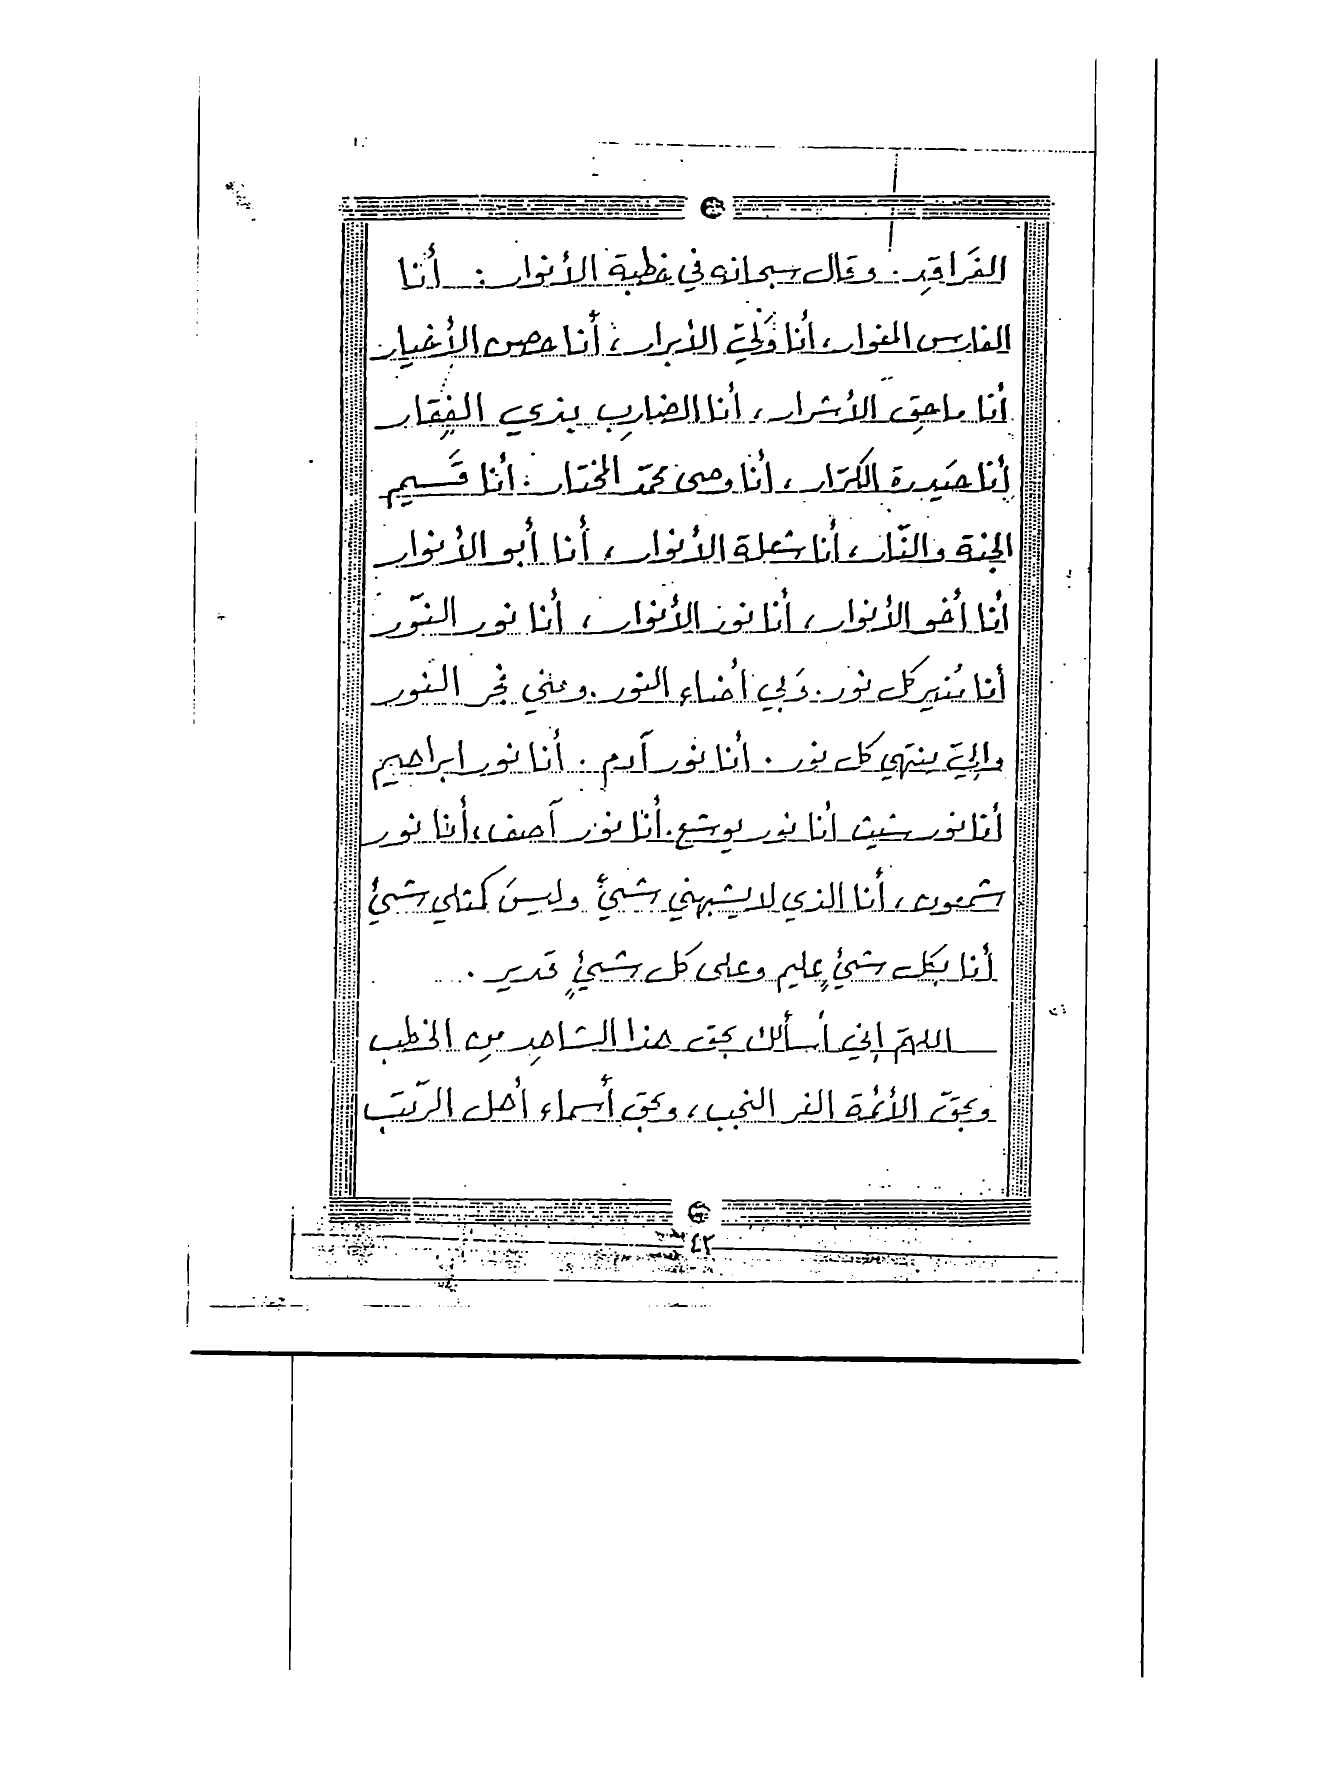 الفَراقِد. وقال سبحانه في خطبة الأنوار: أنا
الفارس المغوار، أنا وَليّ الأبرار، أنا حصن الأخيار
أنا ماحِق الأشرار، أنا الضارِب بذي الفِقار
أنا حَيدرة الكرّار، أنا وصي محمّد المختار. أنا قَسيم
الجنة والنّار، أنا شعلة الأنوار، أنا أبو الأنوار
أنا أخو الأنوار، أنا نور الأنوار، أنا نور النّور
أنا مُنير كل نور. وَبي أضاء النور. ومني فجر النور
والِيّ ينتهي كل نور. أنا نور آدم. أنا نور ابراهيم
أنا نور شيث أنا نور يوشع. أنا نور آصف، أنا نور
شمعون، أنا الذي لا يشبهني شيئٌ وليسَ كمثلي شيئٌ
أنا بكل شيئٍ عليم وعلى كل شيئٍ قدير.
اللهمّ إني أسألك بحق هذا الشاهِد مِن الخطب
وبحقّ الأئمة الغر النجب، وبحق أسماء أهل الرّتَب
٤٢